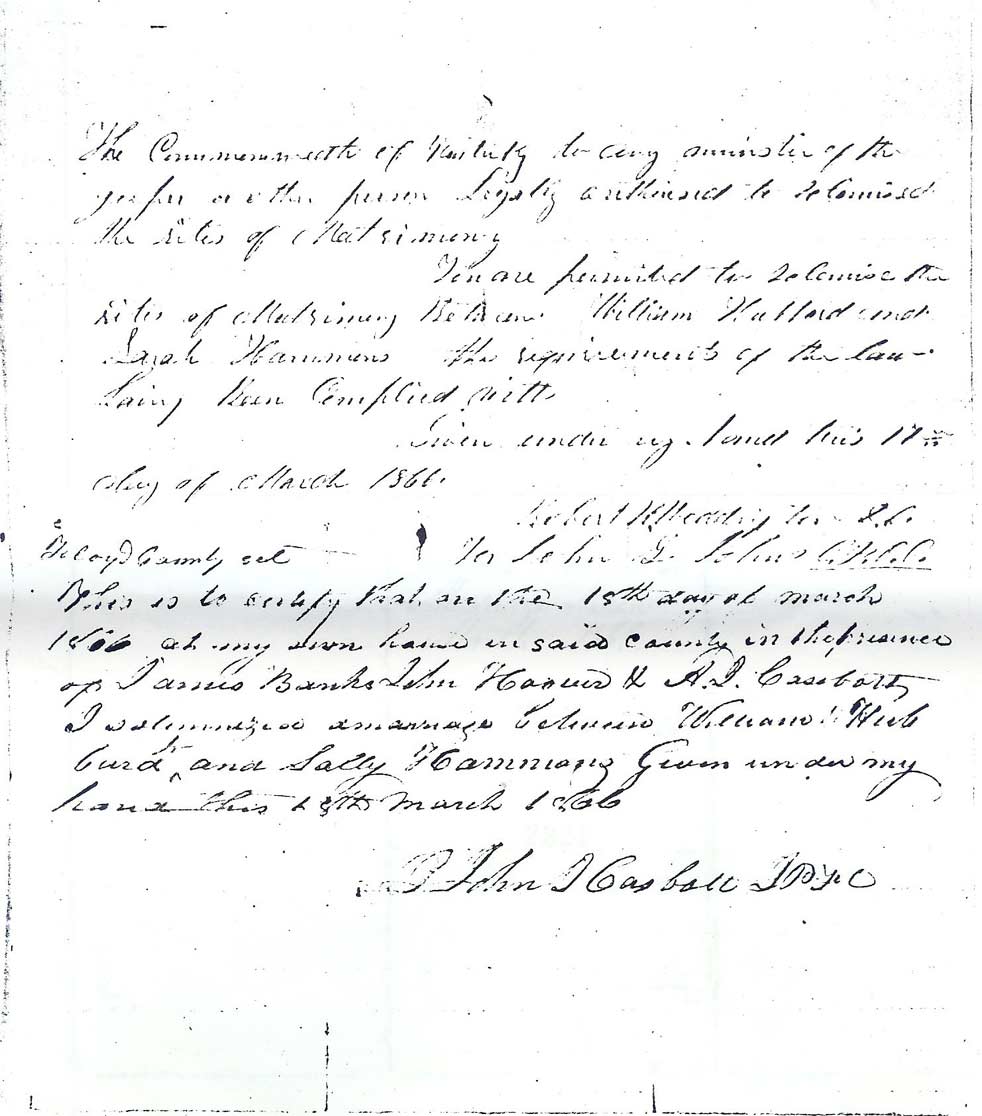 The Commonwealth of Kentucky to any minister of the
gosper or other person Legally authorised to solemised
the rites of Matrimony
You are permitted to solemise the
rites of Matrimony Between William Hubbard and
Sarah Hammons the requirements of the law
having Been Complied with
Given under my hand this 17th
day of March 1866.
Robert K
for John G. Johns C.F.C.C.
Floyd County sct
This is to certify that on the 18th day of march
1866 at my own house in said county in the presence
of James Banks John Hoover & A.J. Casebolt
I solemnized a marriage between William Hub
burd and Sally Hammong Given under my
hand this 18th March 1866
John I Casbolt J P F C